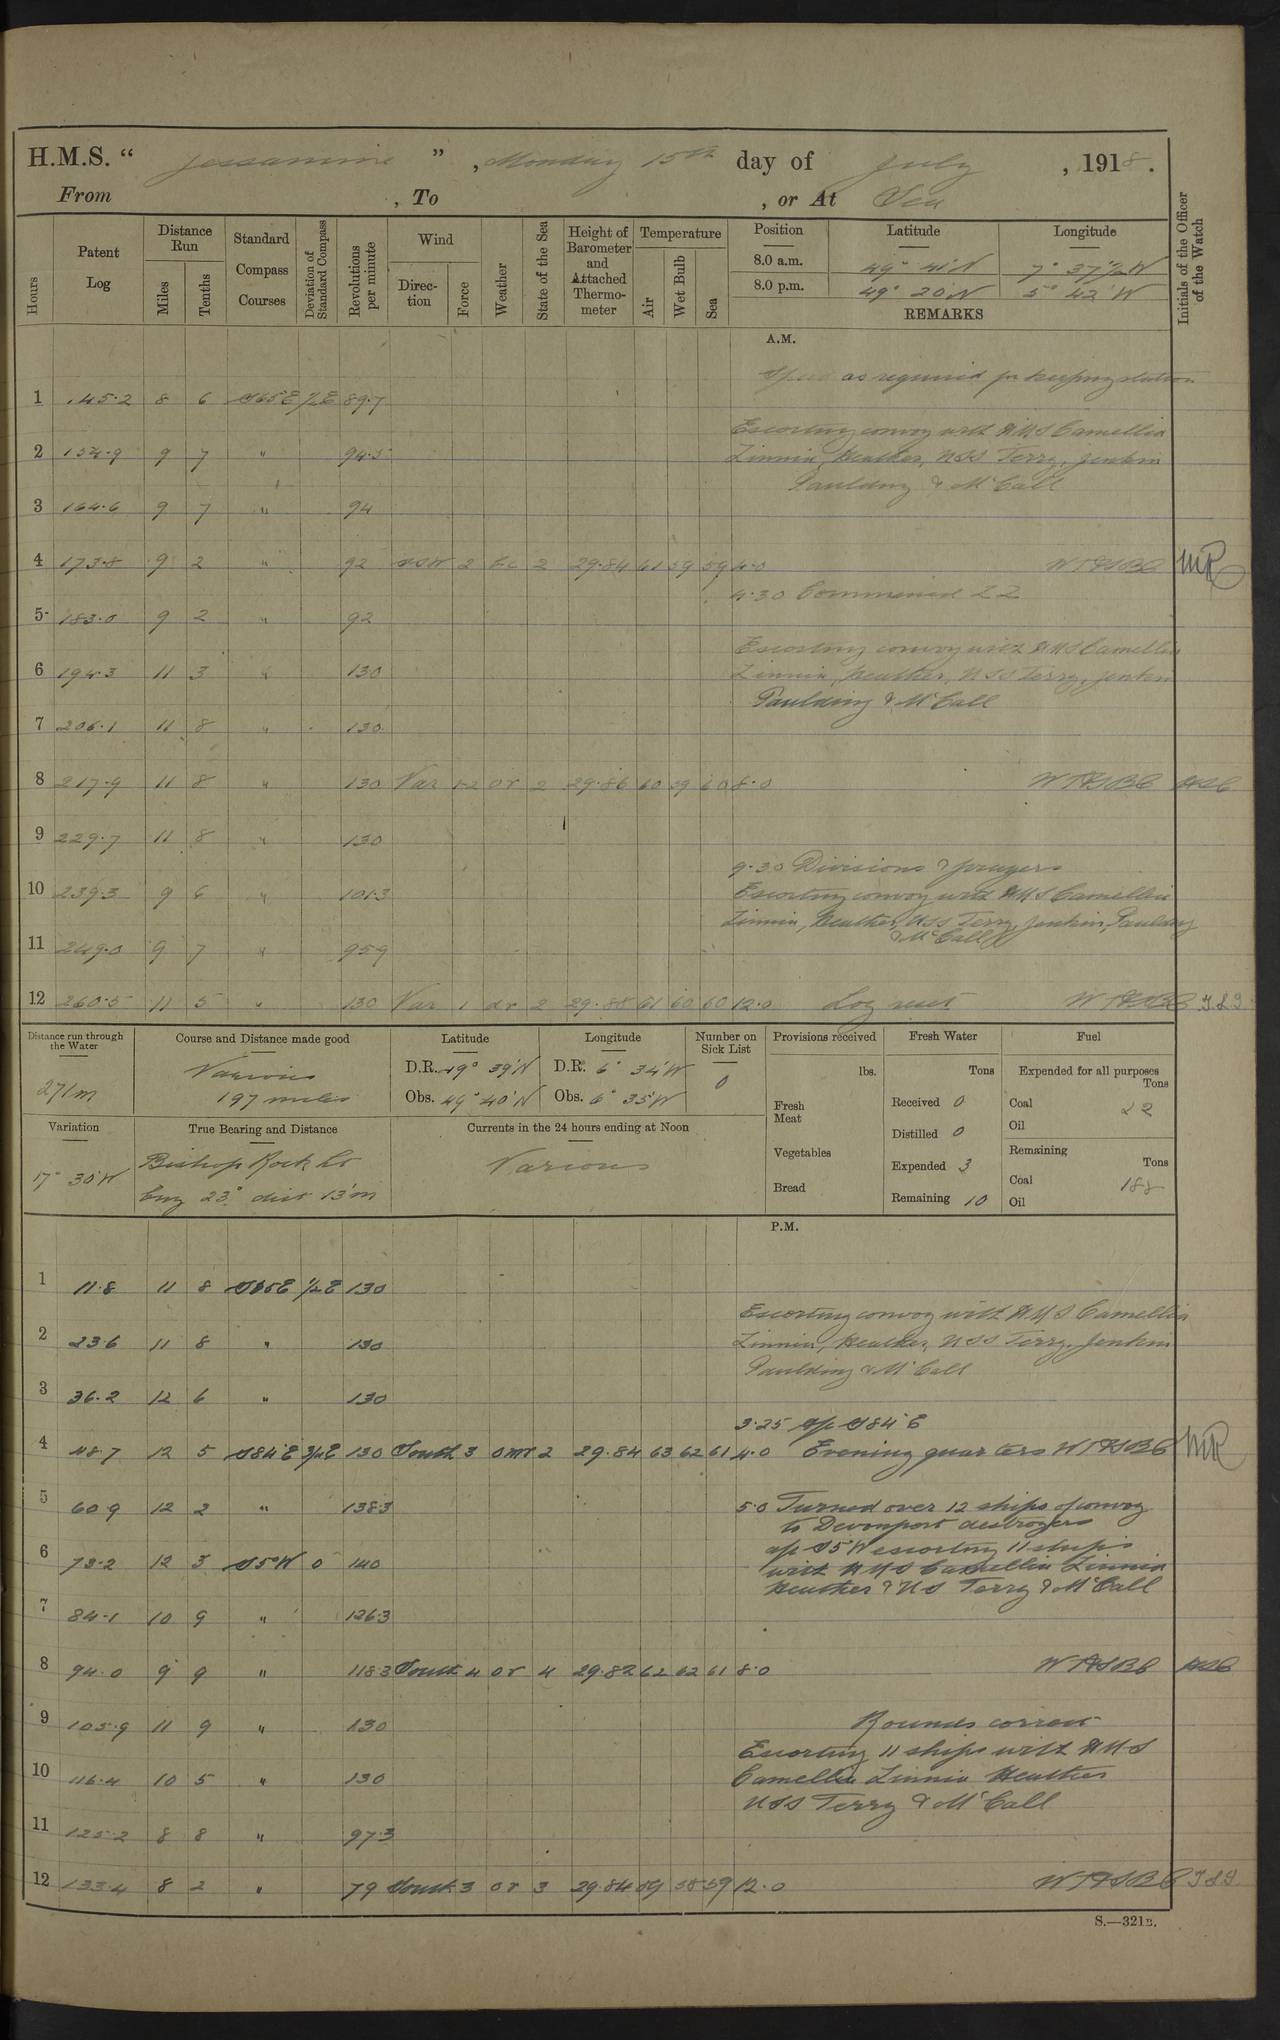 H.M.S. " Jessamine " , Monday 15th day of July , 1918.
From , To , or At Sea
Hours
Patent Log
Distance Run
Miles
Tenths
Standard Compass Courses
Deviation of Standard Compass
Revolutions per minute
Wind
Direction
Force
Weather
State of the Sea
Height of Barometer and Attached Thermometer
Temperature
Air
Wet Bulb
Sea
Position Latitude Longitude
8.0 a.m. 49° 41'N 7° 37½'W
8.0 p.m. 49° 20'N 5° 42'W
REMARKS
Initials of the Officer of the Watch
A.M.
Speed as required for keeping station
1 145.2 8 6 S65E ½E 89.7
Escorting convoy with HMS Camellia
2 154.9 9 7 " 94.5 Zinnia, Heather, USS Terry, Jenkin
Paulding & McCall
3 164.6 9 7 " 94
4 173.8 9 2 " 92 SSW 2 bc 2 29.84 61 59 59 4.0 WTHSBC MR
4.30 Commenced ZZ
5 183.0 9 2 " 92
Escorting convoy with HMS Camellia
6 194.3 11 3 " 130 Zinnia, Heather, USS Terry, Jenkin
Paulding & McCall
7 206.1 11 8 " 130
8 217.9 11 8 " 130 Var 1-2 or 2 29.86 60 59 60 8.0 WTHSBC
9 229.7 11 8 " 130
9.30 Divisions & prayers
10 239.3 9 6 " 101.3 Escorting convoy with HMS Camellia
Zinnia, Heather, USS Terry, Jenkin, Paulding
& McCall
11 249.0 9 7 " 95.9
12 260.5 11 5 " 130 Var 1 or 2 29.88 61 60 60 12.0 Log reset WTHSBC
Distance run through the Water
271m
Course and Distance made good
Various
197 miles
Latitude
D.R. 49° 39'N
Obs. 49° 40'N
Longitude
D.R. 6° 34'W
Obs. 6° 35'W
Number on Sick List
0
Variation
17° 30'W
True Bearing and Distance
Bishop Rock Lt
brg 23° dist 13'm
Currents in the 24 hours ending at Noon
Various
Provisions received
lbs.
Fresh Meat
Vegetables
Bread
Fresh Water
Tons
Received 0
Distilled 0
Expended 3
Remaining 10
Fuel
Expended for all purposes
Tons
Coal 22
Oil
Remaining
Tons
Coal 188
Oil
P.M.
1 11.8 11 8 S65E ½E 130
Escorting convoy with HMS Camellia
2 23.6 11 8 " 130 Zinnia, Heather, USS Terry, Jenkin
Paulding & McCall
3 36.2 12 6 " 130
3.25 a/c S84°E
4 48.7 12 5 S84°E ¾E 130 South 3 omr 2 29.84 63 62 61 4.0 Evening quarters WTHSBC MR
5 60.9 12 2 " 138.3 5.0 Turned over 12 ships of convoy
to Devonport destroyers
a/c S5°W escorting 11 ships
6 73.2 12 3 S5°W 0 140 with HMS Camellia Zinnia
Heather & US Terry & McCall
7 84.1 10 9 " 126.3
8 94.0 9 9 " 118.3 South 4 or 4 29.82 62 62 61 8.0 WTHSBC
9 105.9 11 9 " 130 Rounds correct
Escorting 11 ships with HMS
10 116.4 10 5 " 130 Camellia Zinnia Heather
USS Terry & McCall
11 125.2 8 8 " 97.3
12 133.4 8 2 " 79 South 3 or 3 29.84 59 58 59 12.0 WTHSBC
S.—321B.